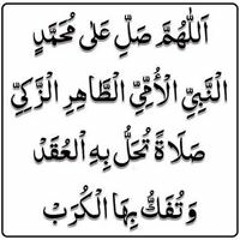 اَللّٰهُمَّ صَلِّ عَلٰى مُحَمَّدٍ
النَّبِيِّ الْأُمِّيِّ الطَّاهِرِ الزَّكِيِّ
صَلَاةً تُحَلُّ بِهِ الْعُقَدْ
وَتُفَكُّ بِهَا الْكُرَبْ